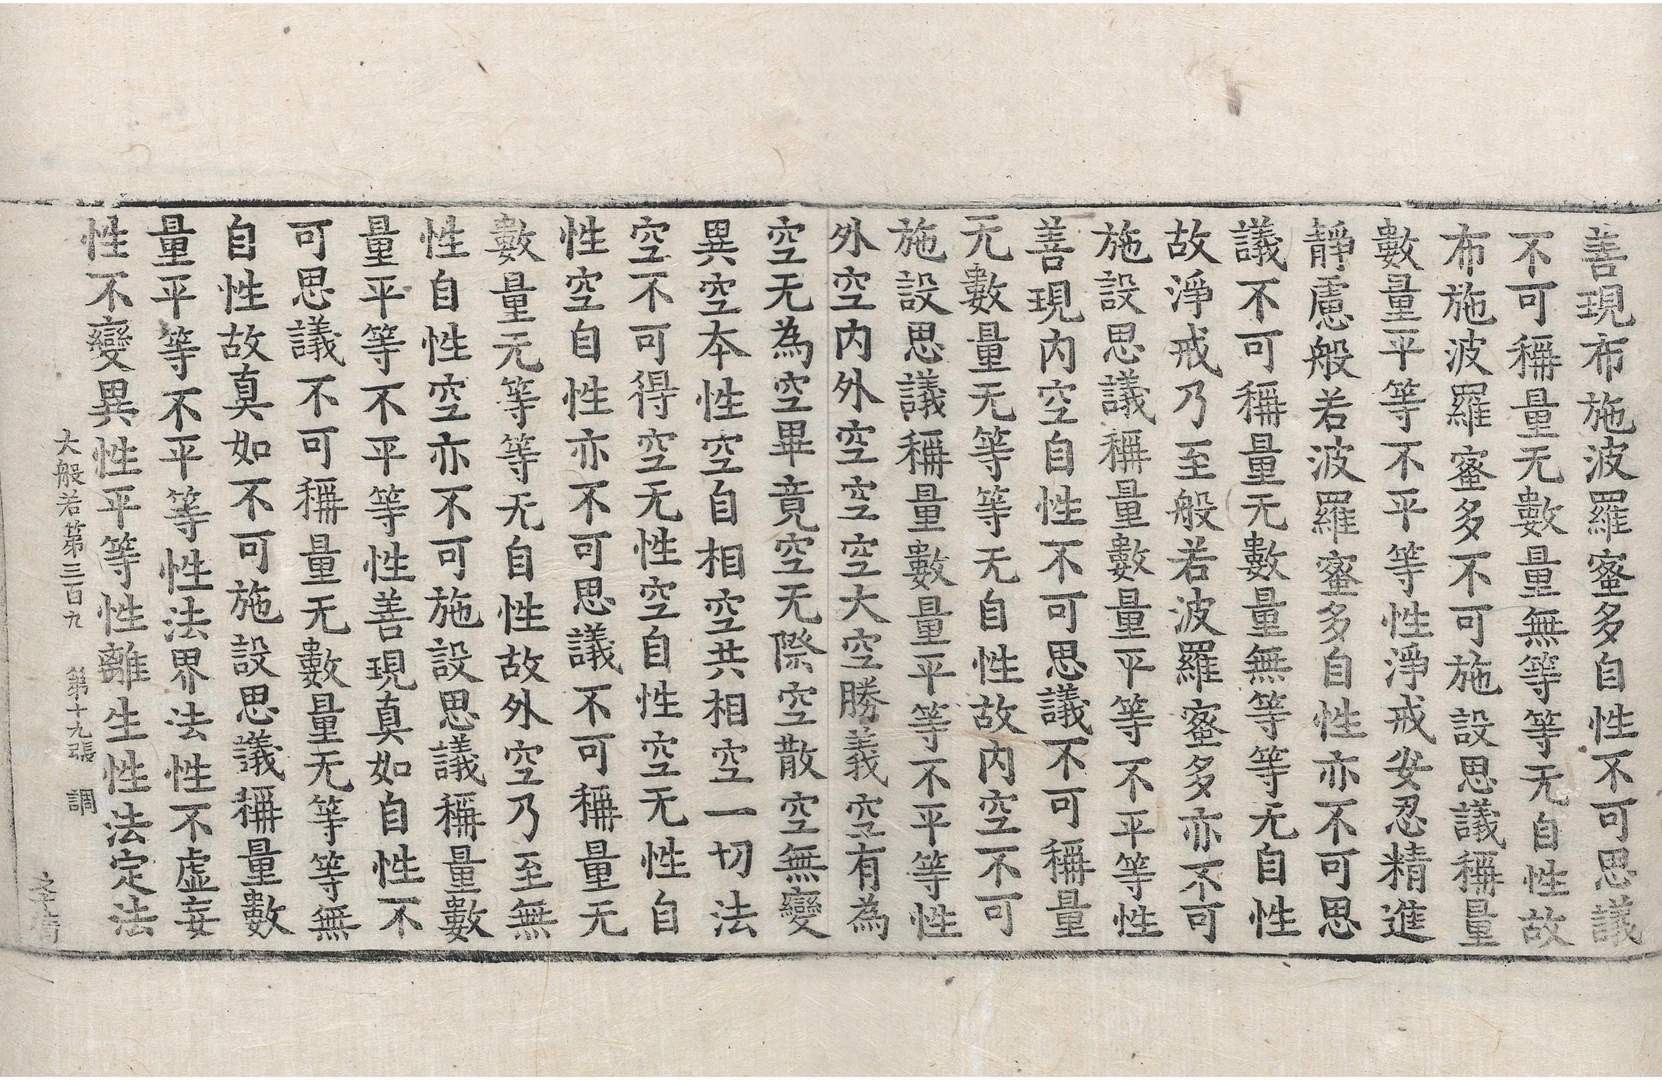 善現布施波羅蜜多自性不可思議
不可稱量无數量無等等无自性故
布施波羅蜜多不可施設思議稱量
數量平等不平等性淨戒安忍精進
靜慮般若波羅蜜多自性亦不可思
議不可稱量无數量無等等无自性
故淨戒乃至般若波羅蜜多亦不可
施設思議稱量數量平等不平等性
善現内空自性不可思議不可稱量
无數量无等等无自性故内空不可
施設思議稱量數量平等不平等性
外空内外空空空大空勝義空有為
空无為空畢竟空无際空散空無變
異空本性空自相空共相空一切法
空不可得空无性空自性空无性自
性空自性亦不可思議不可稱量无
數量无等等无自性故外空乃至無
性自性空亦不可施設思議稱量數
量平等不平等性善現真如自性不
可思議不可稱量无數量无等等無
自性故真如不可施設思議稱量數
量平等不平等性法界法性不虛妄
性不變異性平等性離生性法定法
大般若第三百九 第十九張 調